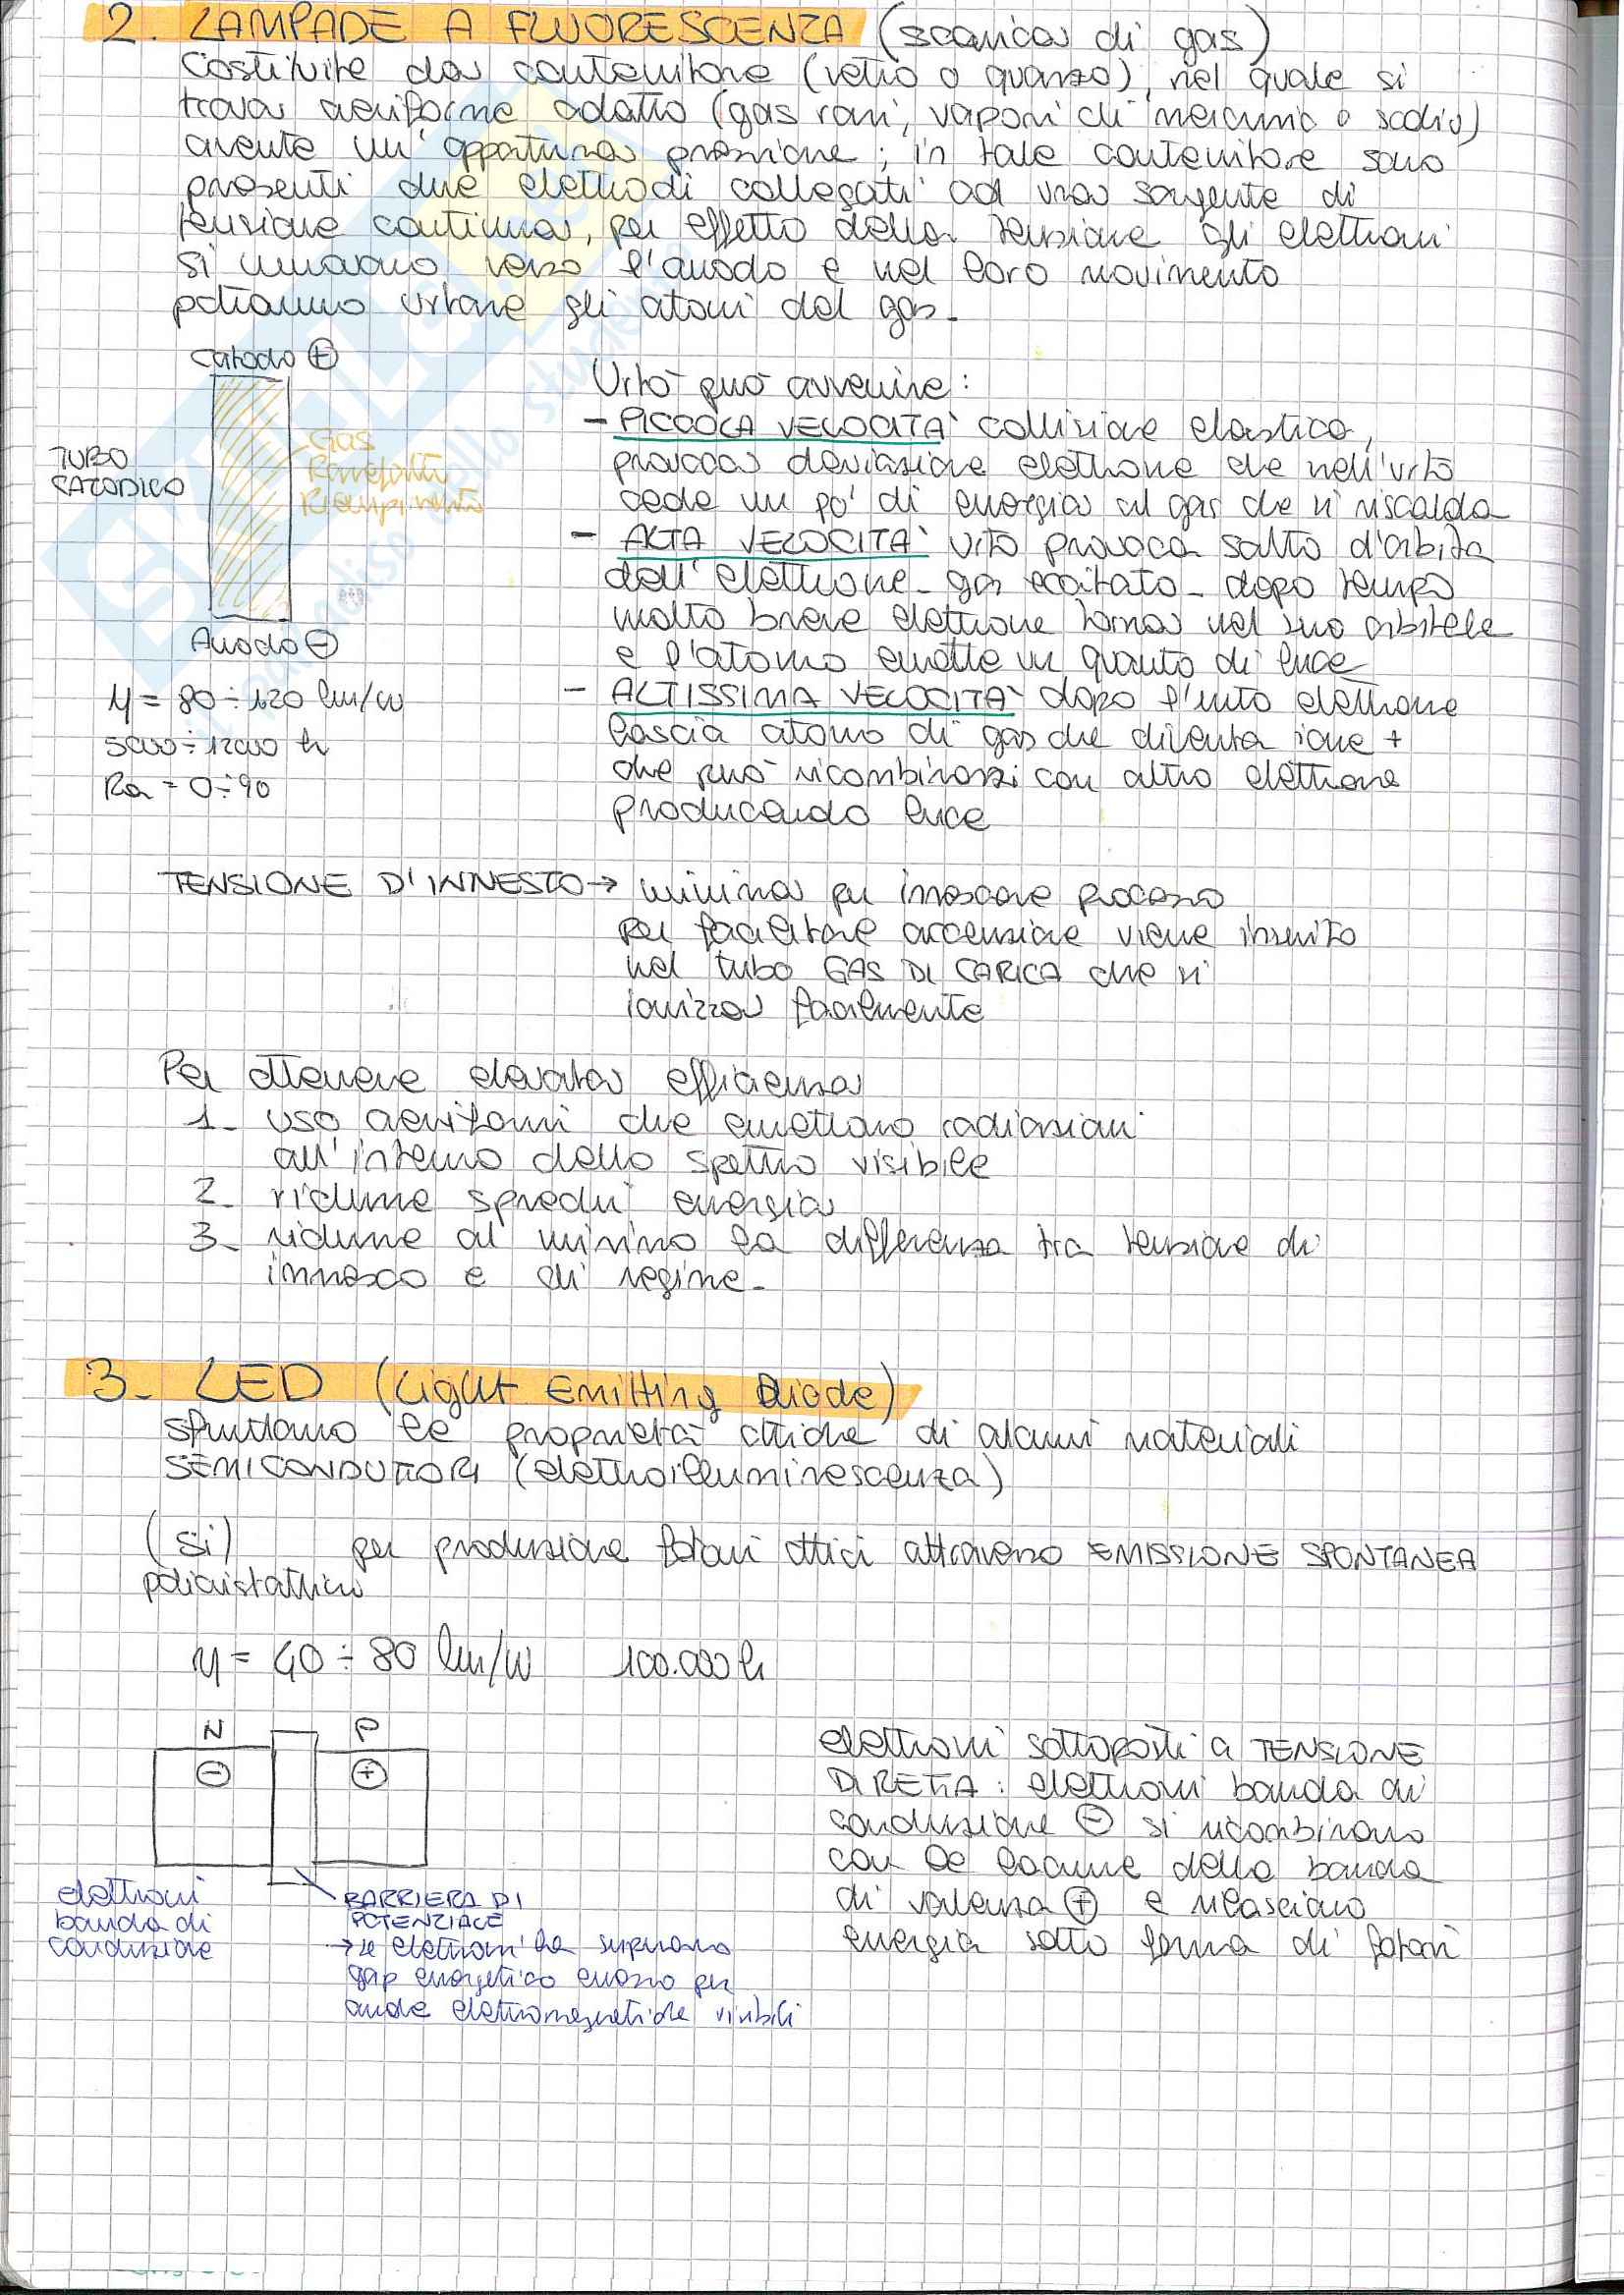 2. LAMPADE A FLUORESCENZA (scarica di gas)
Costituite da contenitore (vetro o quarzo), nel quale si
trova aeriforme adatto (gas rari, vapori di mercurio o sodio)
avente un'opportuna pressione; in tale contenitore sono
presenti due elettrodi collegati ad una sorgente di
tensione continua, per effetto della tensione gli elettroni
si muovono verso l'anodo e nel loro movimento
potranno urtare gli atomi del gas.
Catodo +
TUBO
CATODICO
Gas
Rarefatti
Riempimento
Anodo -
η = 80 ÷ 120 lm/W
5000 ÷ 12000 h
Ra = 0 ÷ 90
Urto può avvenire:
- PICCOLA VELOCITA' collisione elastica,
provoca deviazione elettrone che nell'urto
cede un po' di energia al gas che si riscalda
- ALTA VELOCITA' urto provoca salto d'orbita
dell'elettrone - gas eccitato - dopo tempo
molto breve elettrone torna nel suo orbitale
e l'atomo emette un quanto di luce
- ALTISSIMA VELOCITA' dopo l'urto elettrone
lascia atomo di gas che diventa ione +
che può ricombinarsi con altro elettrone
producendo luce
TENSIONE D'INNESTO → minima per innescare processo
per facilitare accensione viene inserito
nel tubo GAS DI CARICA che si
ionizza facilmente
Per ottenere elevata efficienza
1. uso aeriformi che emettono radiazioni
all'interno dello spettro visibile
2. ridurre sprechi energia
3. ridurre al minimo la differenza tra tensione di
innesco e di regime.
3. LED (Light Emitting Diode)
sfruttano le proprietà ottiche di alcuni materiali
SEMICONDUTTORI (elettroilluminescenza)
(Si) per produzione fotoni ottici attraverso EMISSIONE SPONTANEA
policristallino
η = 40 ÷ 80 lm/W 100.000 h
N P
- +
elettroni
banda di
conduzione
BARRIERA DI
POTENZIALE
→ se elettroni la superano
gap energetico emesso per
onde elettromagnetiche visibili
elettroni sottoposti a TENSIONE
DIRETTA: elettroni banda di
conduzione - si ricombinano
con le lacune della banda
di valenza + e rilasciano
energia sotto forma di fotoni